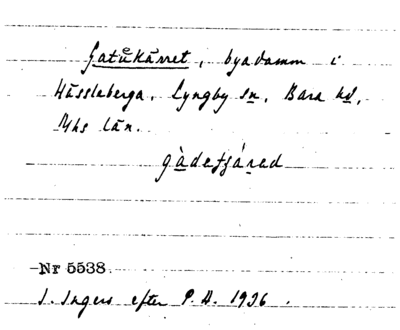 Gatukärret, byadamm i
Hässleberga. Lyngby sn, Bara hd,
Mhs län.
gàdeʃʃárəd
Nr 5538
I. Ingers efter P. H. 1936.